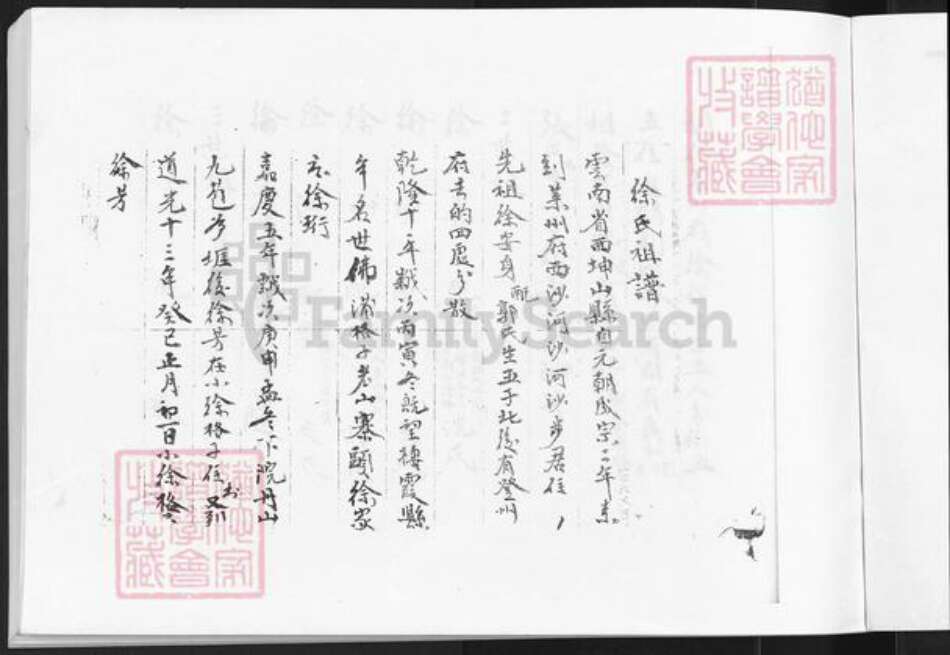 徐氏祖譜
雲南省西坤山縣自元朝成宗二年來
到萊州府西沙河沙河沙步居住
先祖徐安身配郭氏生五子北後有登州
府去的四處分散
乾隆十一年歲次丙寅冬既望棲霞縣
年名世佛 格子老山寨頭徐家
徐珩
嘉慶五年歲次庚申孟冬下院丹山
九 後徐芳在小徐格子住 又到
道光十三年癸巳正月初一日小徐格
徐芳
譜學會
收藏
FamilySearch
譜學會
收藏